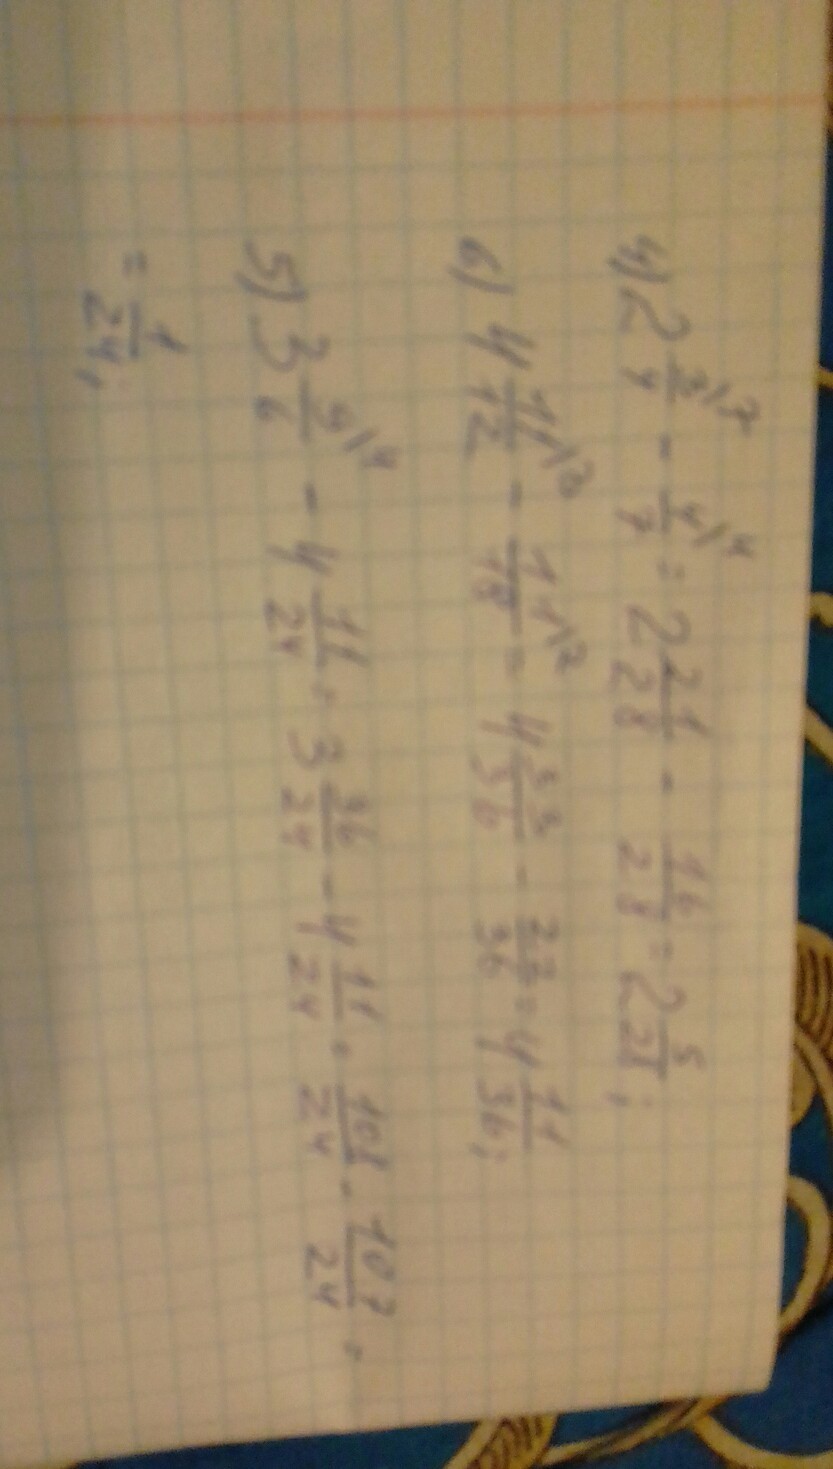 4) 2 3\7/4 - 4\4/7 = 2 21/28 - 16/28 = 2 5/28;
6) 4 11\3/12 - 11\2/18 = 4 33/36 - 22/36 = 4 11/36;
5) 3 9\4/6 - 4 11/24 = 3 36/24 - 4 11/24 = 108/24 - 107/24 =
= 1/24;